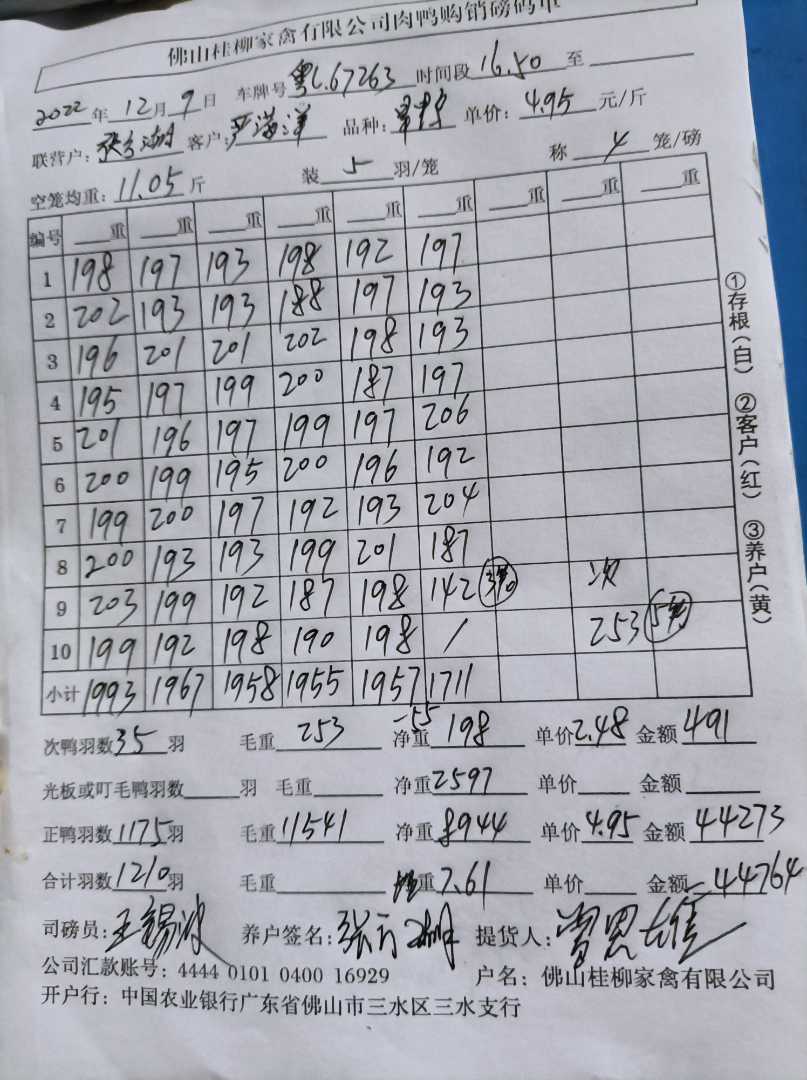 佛山桂柳家禽有限公司肉鸭购销磅码单
2022年12月9日 车牌号粤L.67263 时间段16.50至
联营户: 客户:严海洋 品种: 单价:4.95元/斤
空笼均重:11.05斤 装5羽/笼 称4笼/磅
编号 重 重 重 重 重 重 重 重 重
1 198 197 193 198 192 197
2 202 193 193 188 197 193
3 196 201 201 202 198 193
4 195 197 199 200 187 197
5 201 196 197 199 197 206
6 200 199 195 200 196 192
7 199 200 197 192 193 204
8 200 193 193 199 201 187
9 203 199 192 187 198 142 3笼 次
10 199 192 198 190 198 / 253 5笼
小计 1993 1967 1958 1955 1957 1711
次鸭羽数35羽 毛重253 -55 净重198 单价2.48 金额491
光板或叮毛鸭羽数 羽 毛重 净重2597 单价 金额
正鸭羽数1175羽 毛重11541 净重8944 单价4.95 金额44273
合计羽数1210羽 毛重 均重7.61 单价 金额44764
司磅员:王锡波 养户签名: 提货人:
公司汇款账号: 4444 0101 0400 16929 户名: 佛山桂柳家禽有限公司
开户行: 中国农业银行广东省佛山市三水区三水支行
①存根(白) ②客户(红) ③养户(黄)